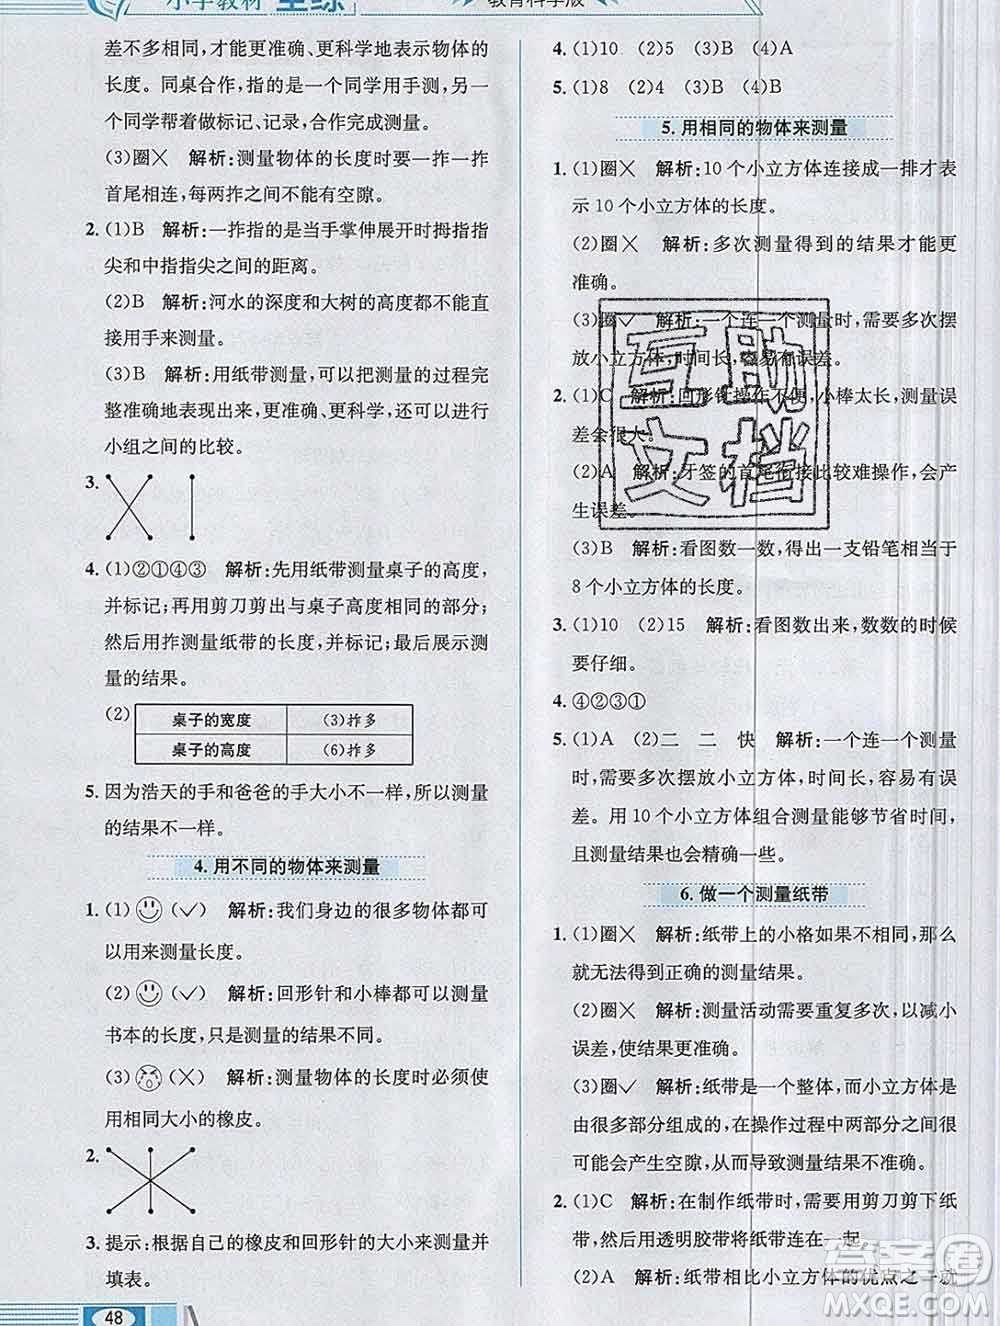 小学教材 全练
教育科学版
差不多相同,才能更准确、更科学地表示物体的
长度。同桌合作,指的是一个同学用手测,另
一个同学帮着做标记、记录,合作完成测量。
(3)圈✕ 解析:测量物体的长度时要一拃一拃
首尾相连,每两拃之间不能有空隙。
2. (1)B 解析:一拃指的是当手掌伸展开时拇指指
尖和中指指尖之间的距离。
(2)B 解析:河水的深度和大树的高度都不能直
接用手来测量。
(3)B 解析:用纸带测量,可以把测量的过程完
整准确地表现出来,更准确、更科学,还可以进行
小组之间的比较。
3.
4. (1)②①④③ 解析:先用纸带测量桌子的高度,
并标记;再用剪刀剪出与桌子高度相同的部分;
然后用拃测量纸带的长度,并标记;最后展示测
量的结果。
(2) 桌子的宽度 (3)拃多
桌子的高度 (6)拃多
5. 因为浩天的手和爸爸的手大小不一样,所以测量
的结果不一样。
4. 用不同的物体来测量
1. (1) (✓) 解析:我们身边的很多物体都可
以用来测量长度。
(2) (✓) 解析:回形针和小棒都可以测量
书本的长度,只是测量的结果不同。
(3) (✕) 解析:测量物体的长度时必须使
用相同大小的橡皮。
2.
3. 提示:根据自己的橡皮和回形针的大小来测量并
填表。
48
4. (1)10 (2)5 (3)B (4)A
5. (1)8 (2)4 (3)B (4)B
5. 用相同的物体来测量
1. (1)圈✕ 解析:10 个小立方体连接成一排才表
示 10 个小立方体的长度。
(2)圈✕ 解析:多次测量得到的结果才能更
准确。
(3)圈✓ 解析:一个连一个测量时,需要多次摆
放小立方体,时间长,容易有误差。
2. (1)C 解析:回形针操作不便,小棒太长,测量误
差会很大。
(2)A 解析:牙签的首尾衔接比较难操作,会产
生误差。
(3)B 解析:看图数一数,得出一支铅笔相当于
8 个小立方体的长度。
3. (1)10 (2)15 解析:看图数出来,数数的时候
要仔细。
4. ④②③①
5. (1)A (2)二 二 快 解析:一个连一个测量
时,需要多次摆放小立方体,时间长,容易有误
差。用 10 个小立方体组合测量能够节省时间,
且测量结果也会精确一些。
6. 做一个测量纸带
1. (1)圈✕ 解析:纸带上的小格如果不同,那么
就无法得到正确的测量结果。
(2)圈✕ 解析:测量活动需要重复多次,以减小
误差,使结果更准确。
(3)圈✓ 解析:纸带是一个整体,而小立方体是
由很多部分组成的,在操作过程中两部分之间很
可能会产生空隙,从而导致测量结果不准确。
2. (1)C 解析:在制作纸带时,需要用剪刀剪下纸
带,然后用透明胶带将纸带连在一起。
(2)A 解析:纸带相比小立方体的优点之一就
互助
文档
答案圈
MXQE.COM